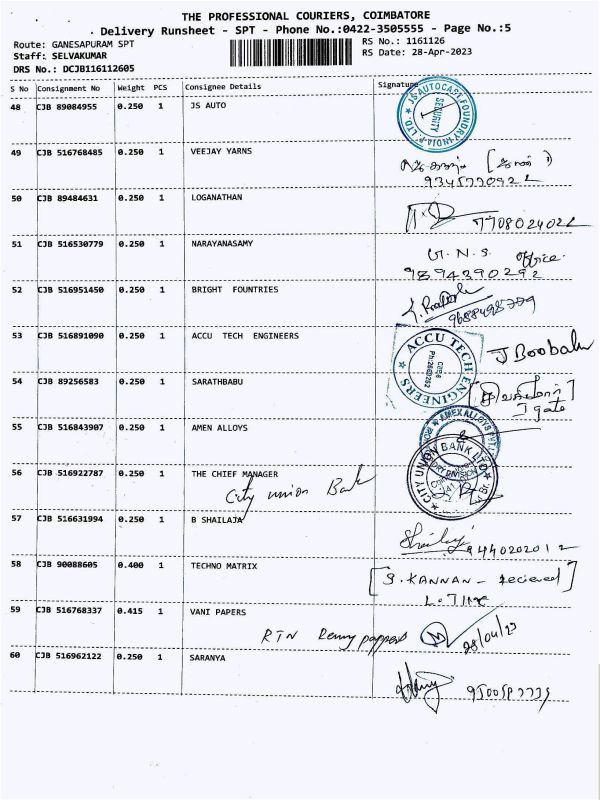 THE PROFESSIONAL COURIERS, COIMBATORE
Delivery Runsheet - SPT - Phone No.:0422-3505555 - Page No.:5
Route: GANESAPURAM SPT
RS No.: 1161126
Staff: SELVAKUMAR
RS Date: 28-Apr-2023
DRS No.: DCJB116112605
S No Consignment No Weight PCS Consignee Details Signature
48 CJB 89084955 0.250 1 JS AUTO
JS AUTOCAST FOUNDRY INDIA P. LTD. SECURITY
49 CJB 516768485 0.250 1 VEEJAY YARNS
50 CJB 89484631 0.250 1 LOGANATHAN
51 CJB 516530779 0.250 1 NARAYANASAMY
G.N.S. office
9894390292
52 CJB 516951450 0.250 1 BRIGHT FOUNTRIES
53 CJB 516891090 0.250 1 ACCU TECH ENGINEERS
ACCU TECH ENGINEERS
J Boobalu
54 CJB 89256583 0.250 1 SARATHBABU
55 CJB 516843907 0.250 1 AMEN ALLOYS
AMEX ALLOYS PVT
56 CJB 516922787 0.250 1 THE CHIEF MANAGER
City union Bank
CITY UNION BANK LTD
57 CJB 516631994 0.250 1 B SHAILAJA
9440202012
58 CJB 90088605 0.400 1 TECHNO MATRIX
[S. KANNAN - recieved]
59 CJB 516768337 0.415 1 VANI PAPERS
RTN
28/04/23
60 CJB 516962122 0.250 1 SARANYA